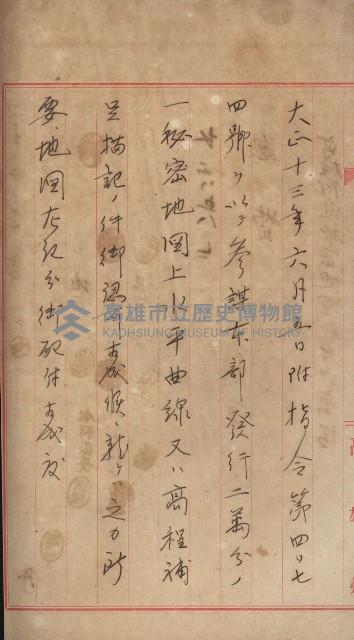 大正十三年六月五日附指令第四〇七
四號ヲ以テ參謀本部發行二萬分ノ
一秘密地圖上ニ水平曲線又ハ高程補
足描記ノ件御認可相成候ニ就テハ之カ所
要地圖左記ノ分御配付相成度
高雄市立歷史博物館
KAOHSIUNG MUSEUM OF HISTORY